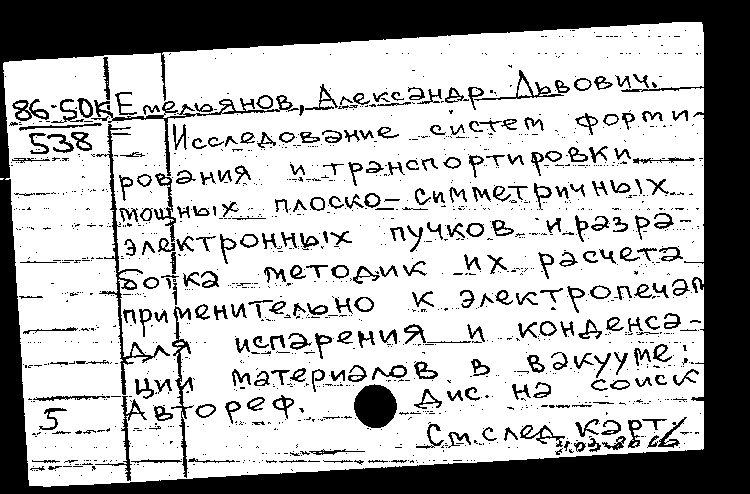 86-50К Емельянов, Александр Львович.
538 Исследование систем форми-
рования и транспортировки
мощных плоско-симметричных
электронных пучков и разра-
ботка методик их расчета
применительно к электропечам
для испарения и конденса-
ции материалов в вакууме:
Автореф. дис. на соиск
5
См. след. карт.